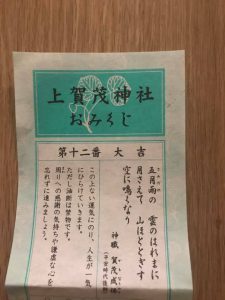 上賀茂神社
おみくじ
第十二番　大吉
五月雨の　雲のはれまに
月さえて　山ほととぎす
空に鳴くなり
神職　賀茂成
（平安時代後期）
この上ない運気にのり、人生が一気
にひらけていきます。
ただし油断は禁物です。
周りへの感謝の気持ちや謙虚な心を
忘れずに進みましょう。